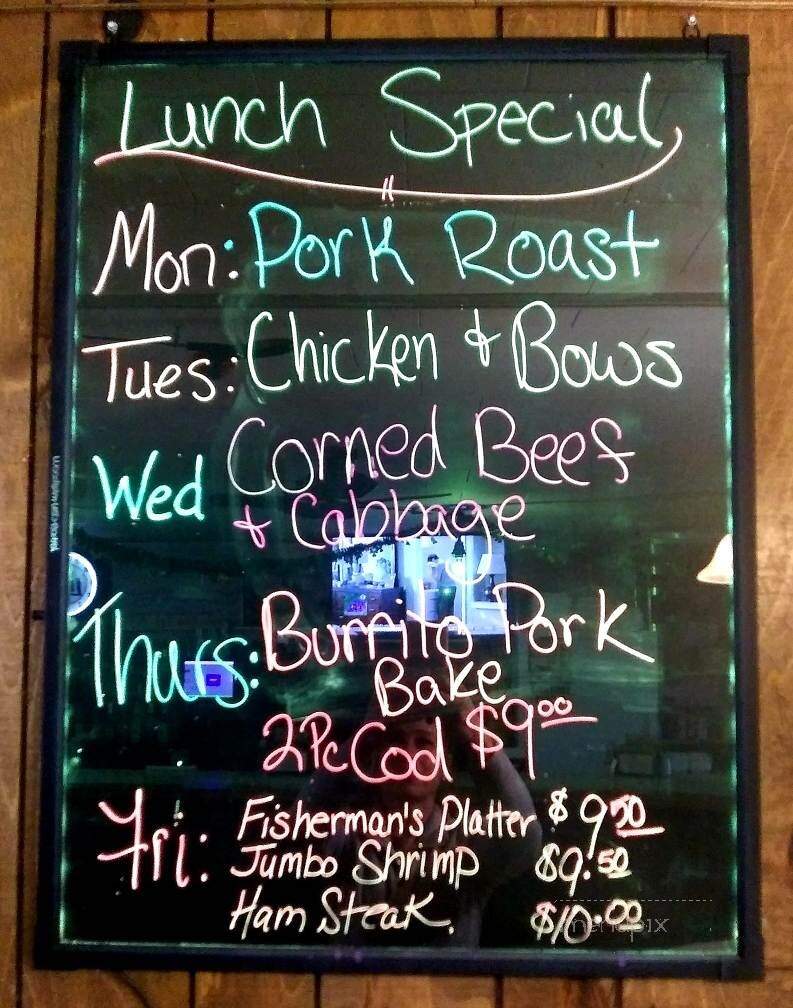 Lunch Special
Mon: Pork Roast
Tues: Chicken + Bows
Wed Corned Beef
+ Cabbage
Thurs: Burrito Pork
Bake
2Pc Cod $9.00
Fri: Fisherman's Platter $9.50
Jumbo Shrimp $9.50
Ham Steak. $10.00
menupix